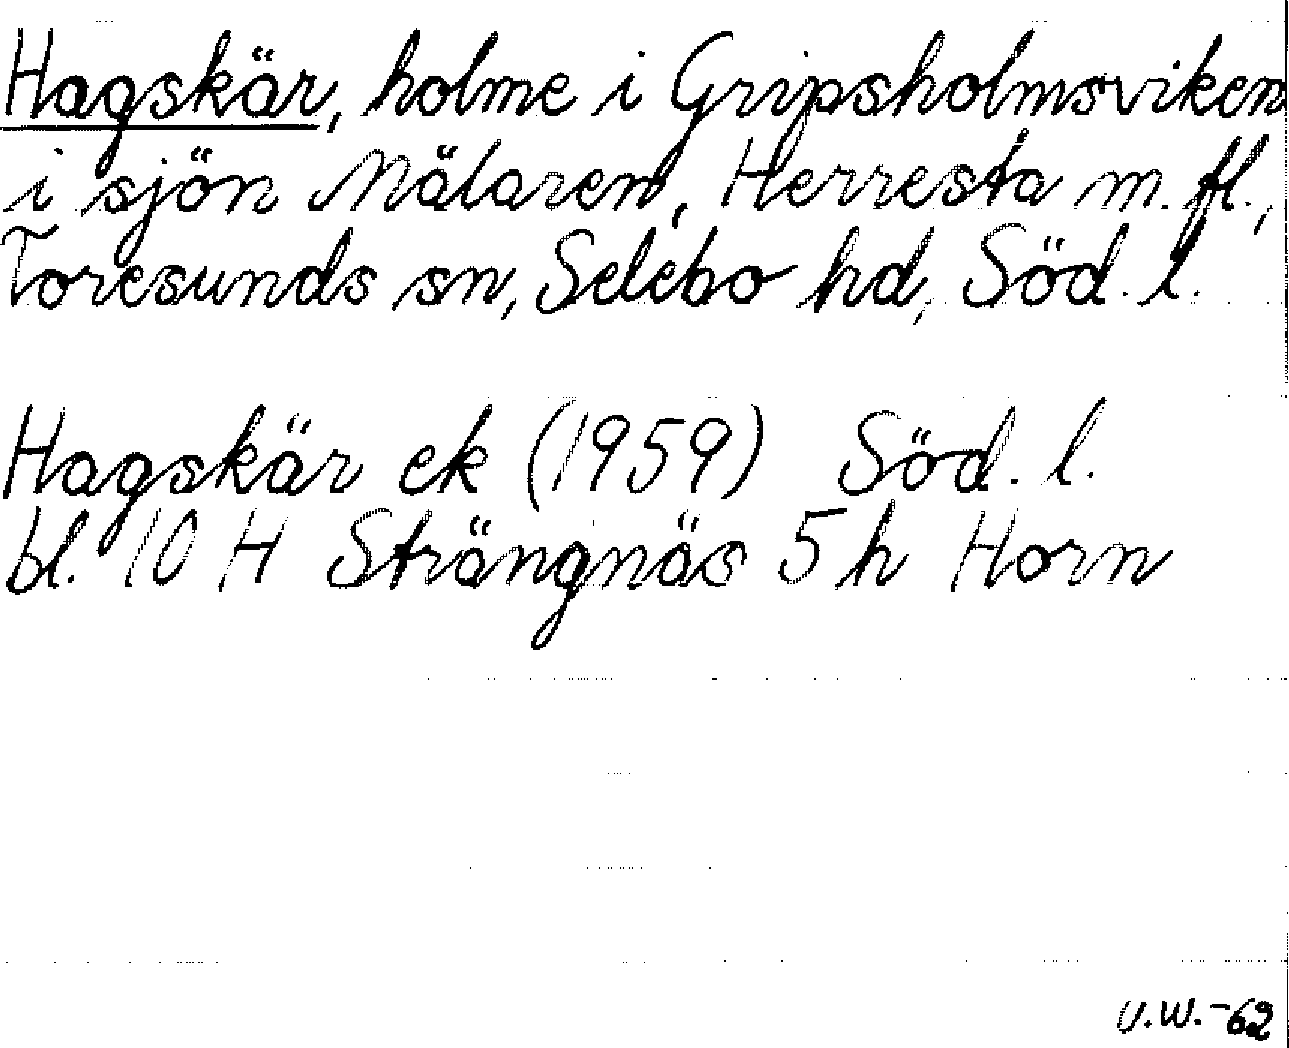 Hagskär, holme i Gripsholmsviken
i sjön Mälaren, Herresta m. fl.,
Toresunds sn, Selebo hd, Söd. l.
Hagskär ek (1959) Söd. l.
bl. 10 H Strängnäs 5 h Horn
U.W.-62